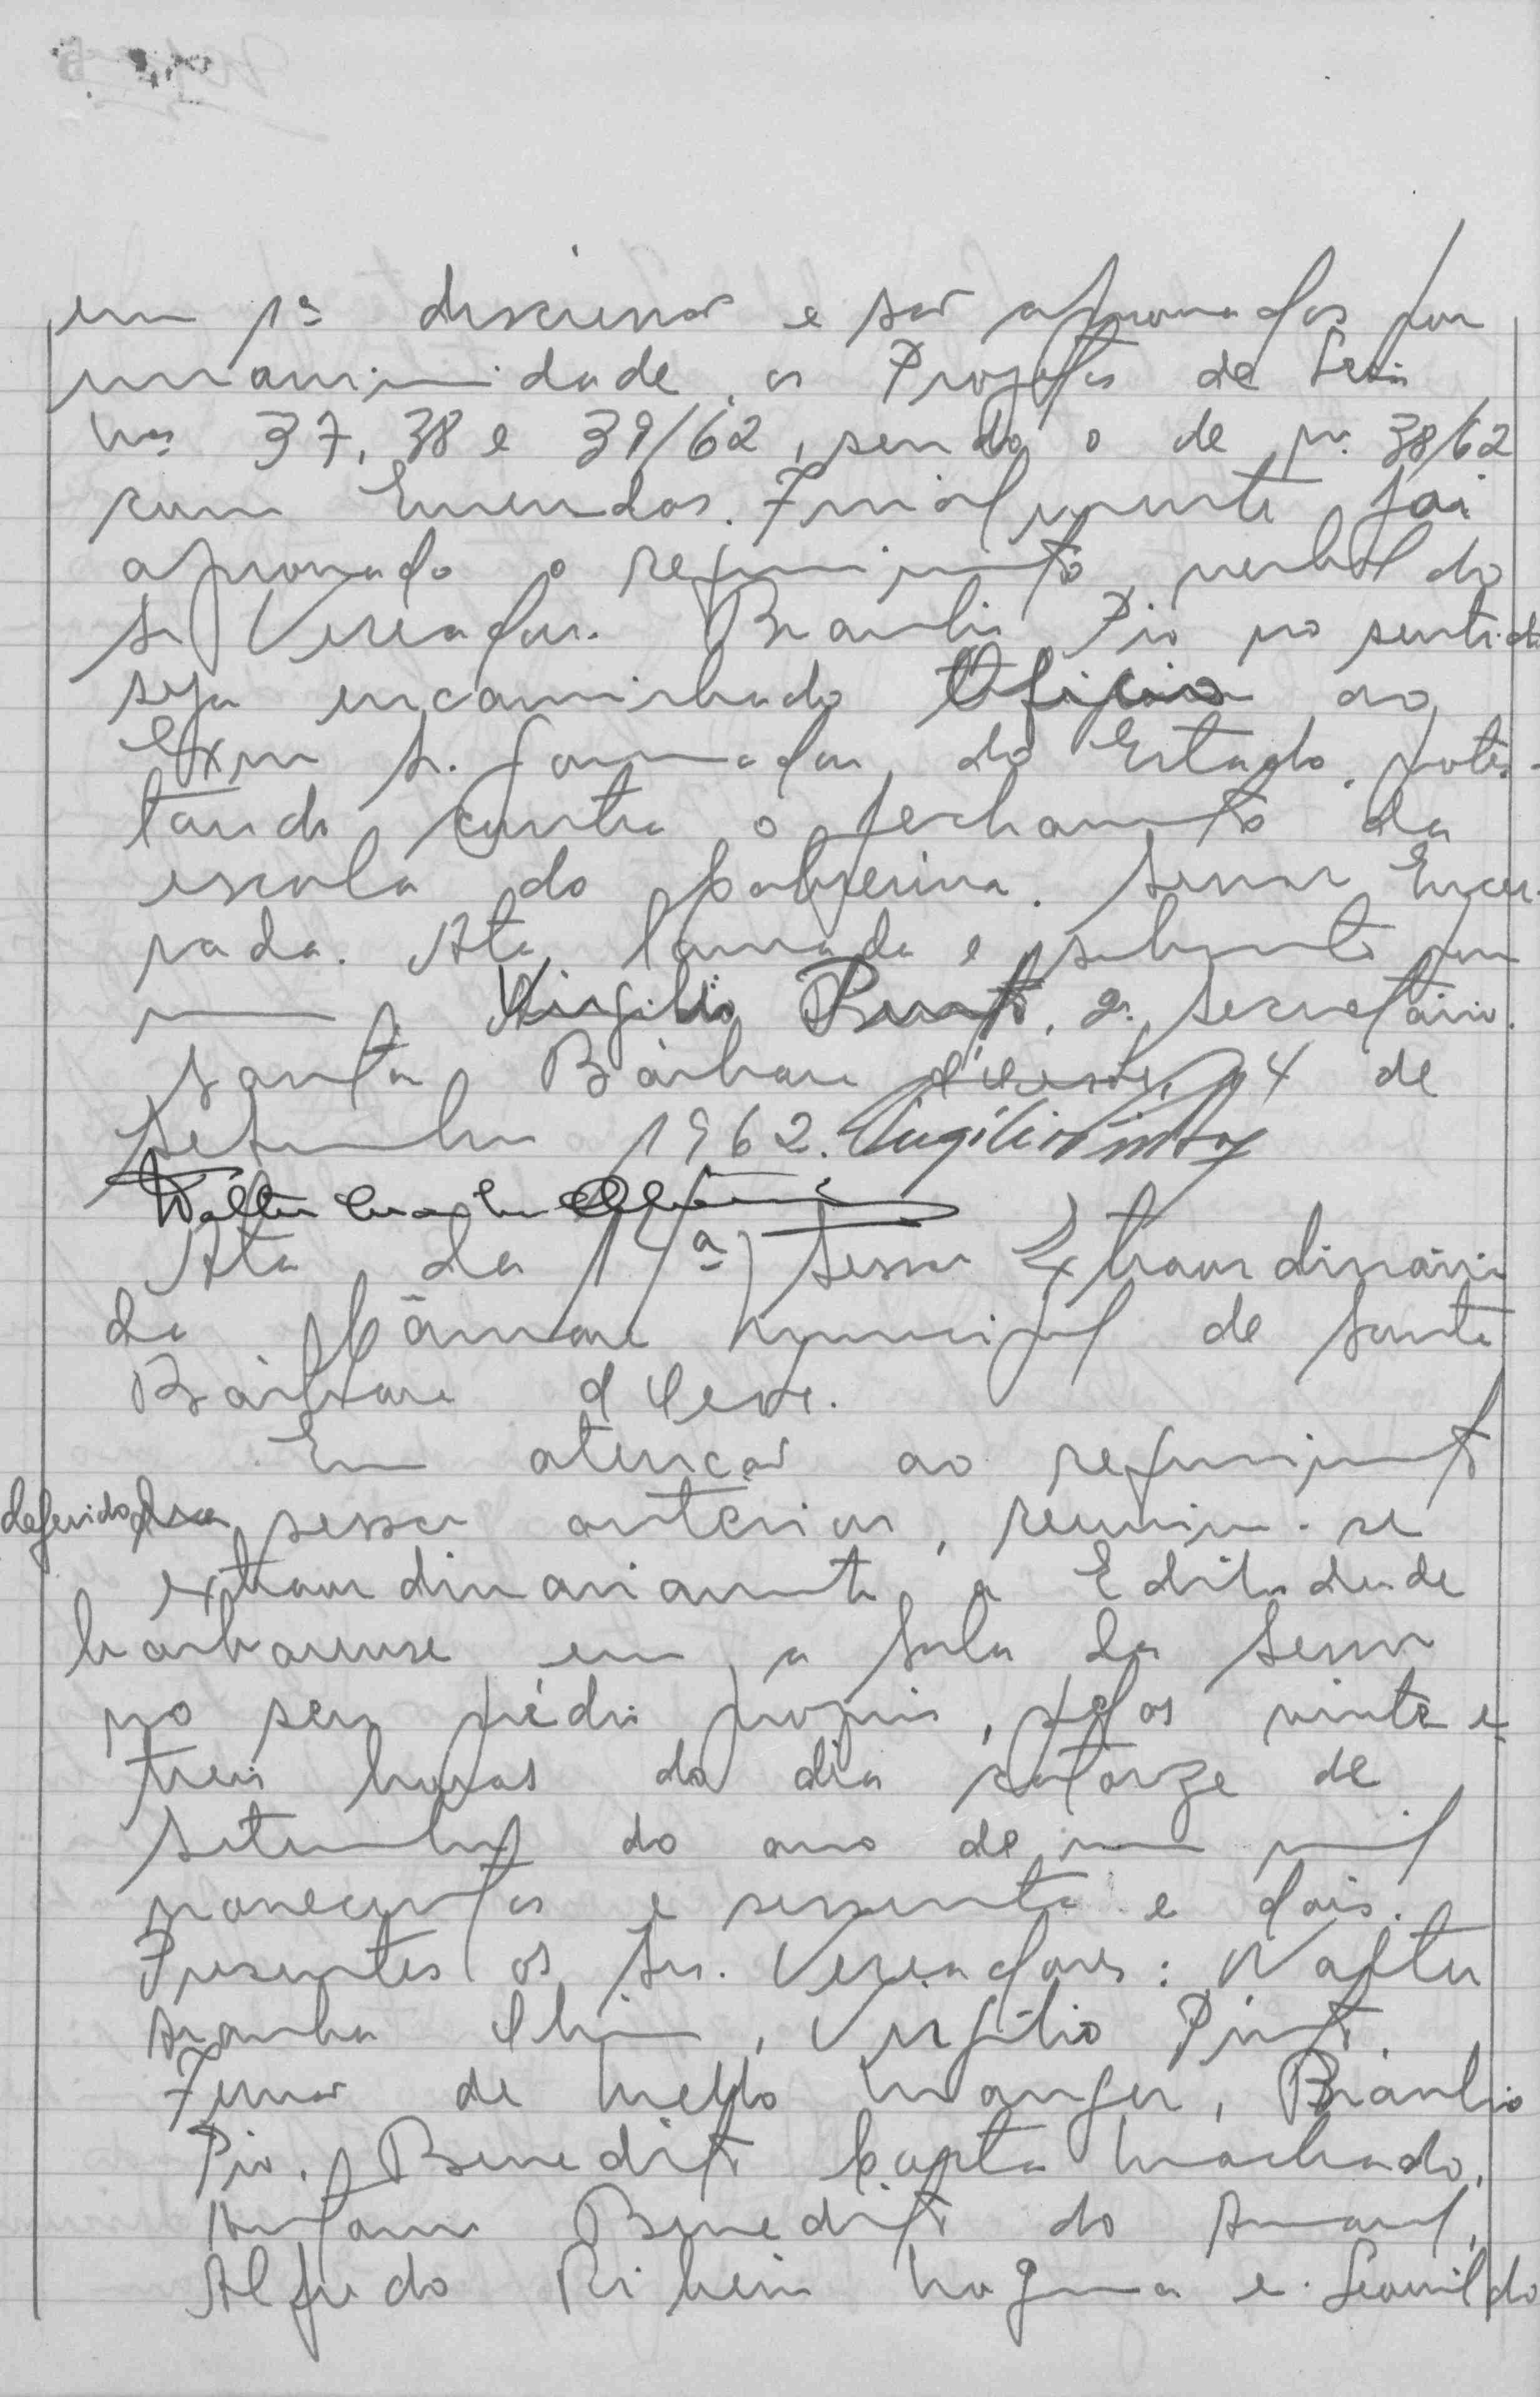 em 1ª discussão e são aprovados por
unanimidade, os Projetos de Leis
nos 37, 38 e 39/62, sendo o de n. 38/62
com Emendas. Finalmente foi
aprovado o requerimento verbal do
Sr Vereador Braulio Pio no sentido
seja encaminhado Oficio ao
Exmo Sr. Governador do Estado, protes-
tando contra o fechamento da
escola do Sessão Encer-
rada. Ata lavrada e subscrita por
mim Virgilio Pinto, 2º. Secretário.
Santa Bárbara d'Oeste, 14 de
Setembro 1962. Virgílio Pinto
Walter
Ata da 14ª) Sessão Extraordinária
da Câmara Municipal de Santa
Bárbara d'Oeste.
Em atenção ao requerimento
deferido na sessão anterior, reuniu-se
extraordinariamente a Edilidade
barbarense em a Sala da Sessão
no seu prédio proprio, pelas vinte e
treis horas do dia catorze de
Setembro do ano de um mil
novecentos e sessenta e dois.
Presentes os Srs. Vereadores: Walter
Virgilio Pinto,
de Mello Bráulio
Pio, Benedito Costa Machado,
Antonio Benedito do Amaral,
Alfredo Ribeiro e Leonildo